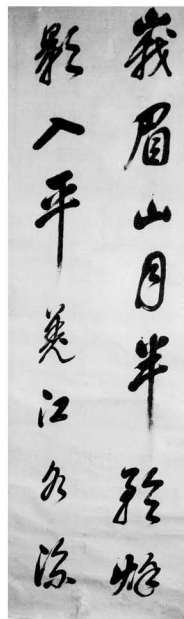 峩眉山月半輪秌
影入平羗江水流